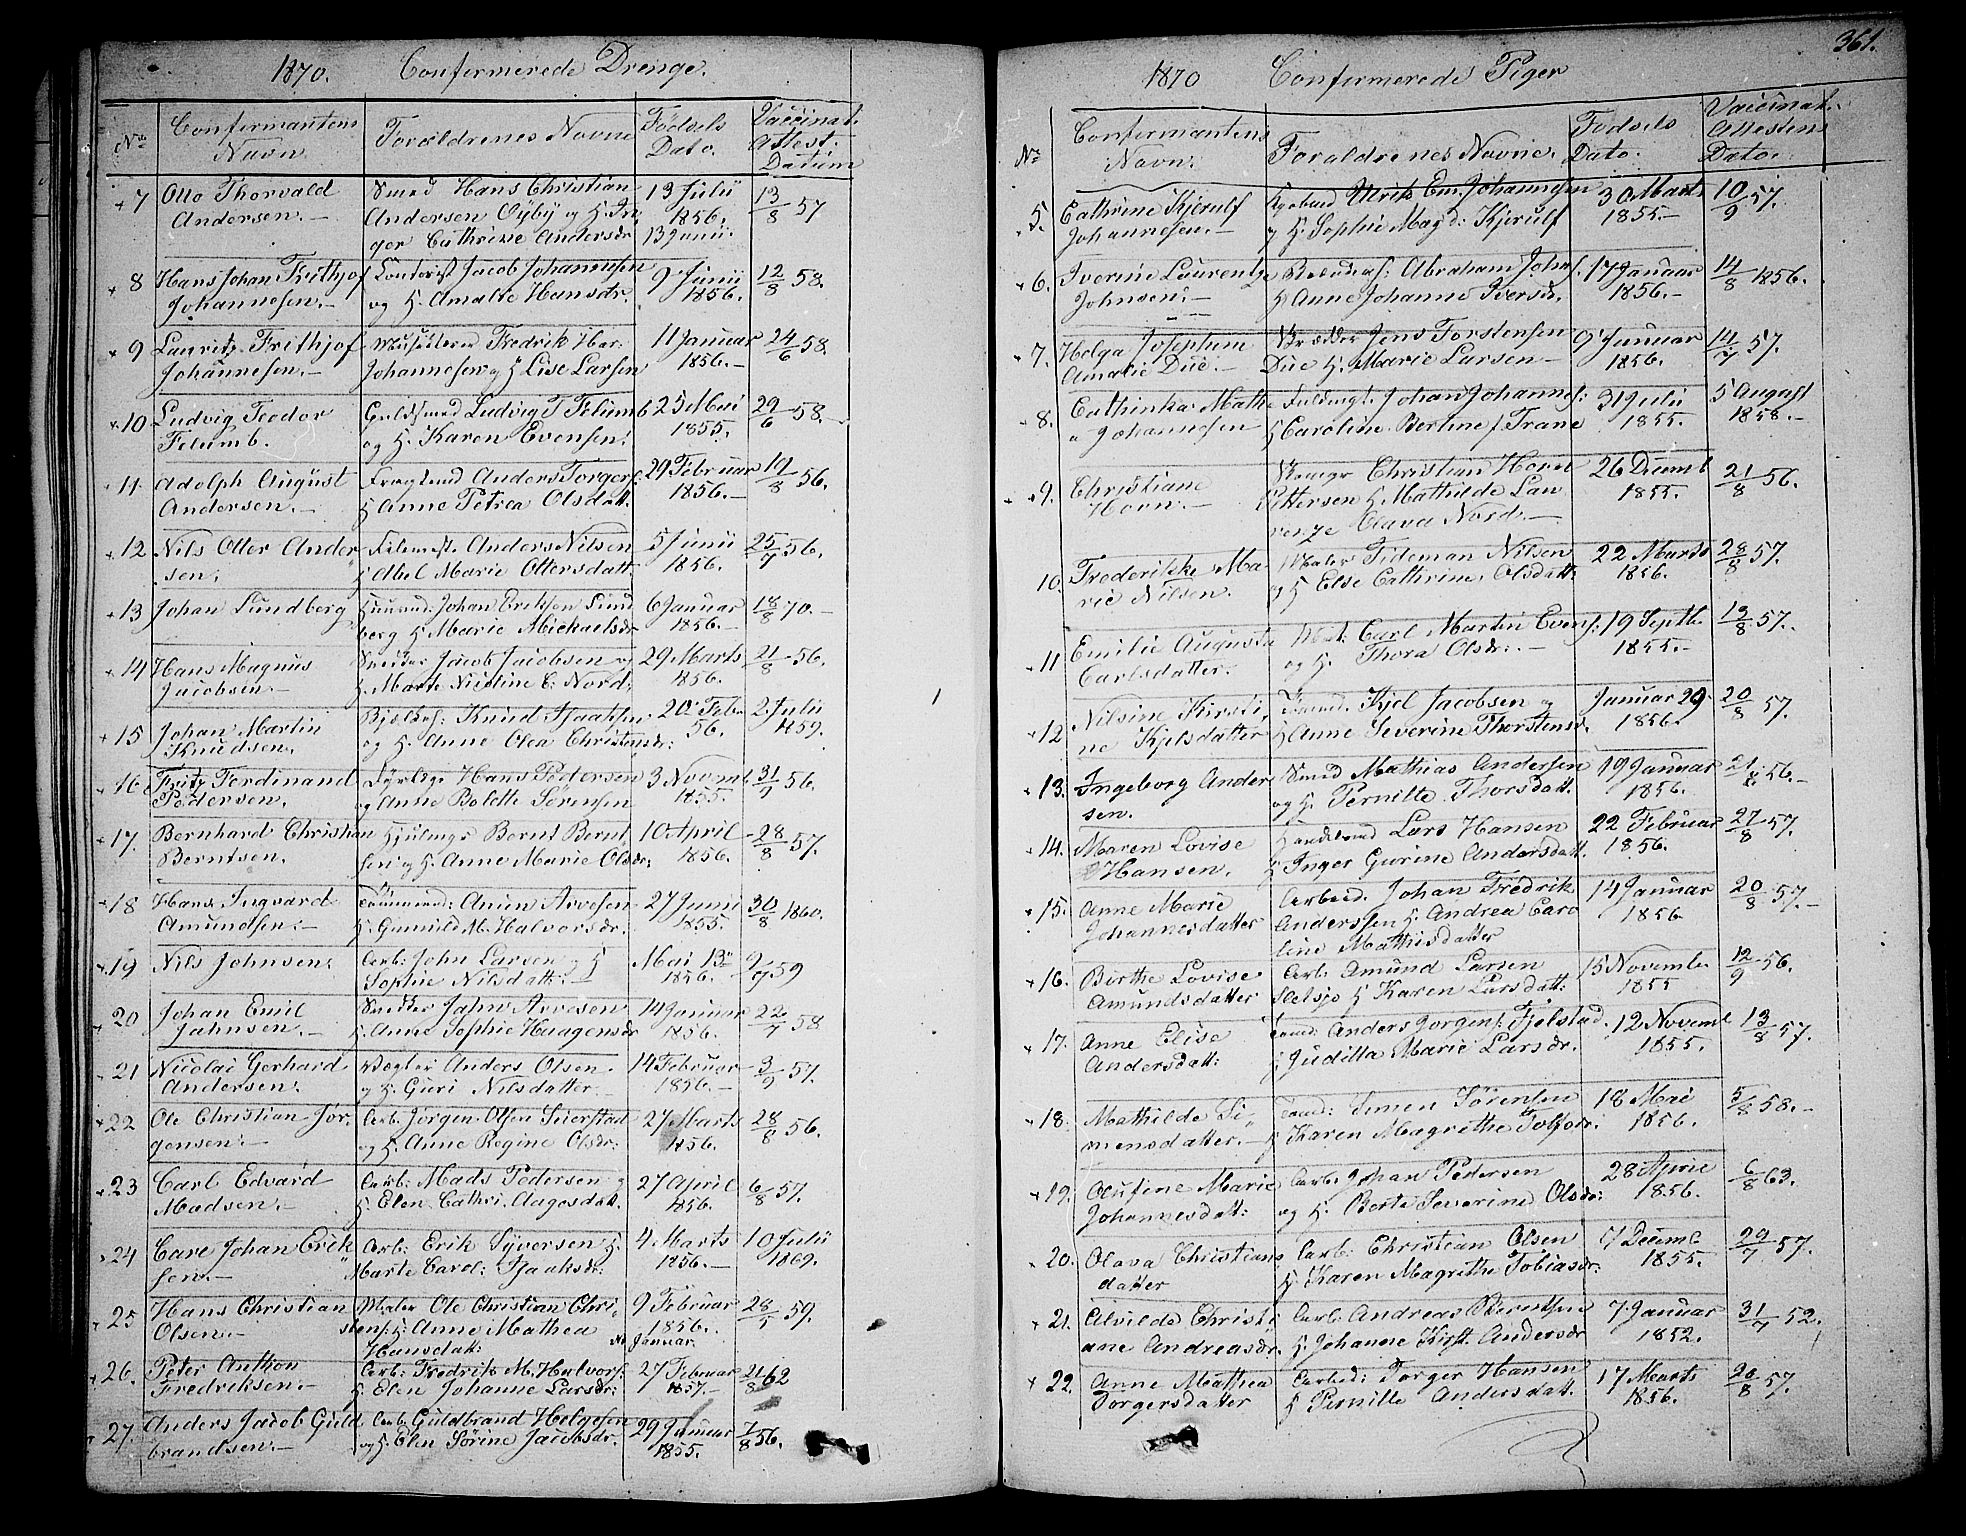 1870. Confirmerede Drenge.
No Confirmantens Navn Forældrenes Navne Fødsels Dato. Vaccinat. Attest: Datum
7 Otto Thorvald Smed Hans Christian 13 Julii 13/8 57
Andersen.- Andersen Øÿbÿ og H. In 1856.
ger Cathrine Andersdr 13 Junii.
8 Hans Johan Frithjof Jacob Johannesen 9 Junii 12/8 58.
Johannesen.- og H. Amalie Hansdr. 1856.
9 Lauritz Frithjof Fredrik Har: 11 Januar 24/6 58.
Johannesen.- Johannesen og H Lise Larsen 1856.-
10 Ludvig Teodor Guldsmed Ludvig T. 25 Mai 29/6 58.
og H. Karen Evensen. 1855.
11. Adolph August Anders Torgers: 29 Februar 19/8 56.
Andersen.- H Anne Petrea Olsdatt. 1856.-
12. Nils Otter Ander Anders Nilsen 5 Junii 25/7 56.
sen. H Abel Marie Ottersdatt. 1856.
13 Johan Lundberg Johan Eriksen Lund 6 Januar 18/8 70.-
berg H Marie Mickaelsdr 1856.-
14 Hans Magnus Snedker Jacob Jacobsen og 29 Marts 21/8 56.
Jacobsen.- H. Marte Nicoline C. Nord. 1856.
15 Johan Martin Knud Isaaksen 20 Feb. 2. Julii
Knudsen. og H. Anne Olea Christensdr: 56. 1859.
16. Fritz Ferdinand Hans Pedersen 3 Novemb. 31/9 56.
Pedersen. og Anne Bolette Sørensen 1855.
17. Bernhard Christian Bernt Bernt 10 April 28/8 57.
Berntsen. sen og H. Anne Marie Olsdr. 1856.
18 Hans Ingvard Amon Arvesen 27 Junii 30/8 1860.
Amundsen.- H. Gunnild M. Halvorsdr. 1855.
19 Nils Johnsen. Arb: John Larsen og H Mai 13 9/7 59
Sophie Nilsdatt. 1856.
20 Johan Emil Snedker Jahn Arvesen 14 Januar 22/7 58
Jahnsen.- H. Anne Sophie Haagensdr 1856.
21 Nicolai Gerhard Anders Olsen 14 Februar 3/9 57.
Andersen. og H. Guri Nilsdatter. 1856.-
22 Ole Christian Jør Arb. Jørgen Olsen Seierstad 27 Marts 28/8 56.
gensen.- og H. Anne Regine Olsdr. 1856.
23 Carl Edvard Arb. Mads Pedersen og 27 April 6/8 57.
Madsen.- H. Elen Cathri. Aagesdatt. 1856.
24 Carl Johan Erik Arb: Erik Syversen H. 4 Marts 10 Julii
sen.- Marte Carol: Isaaksdr. 1856.- 1869.
25 Hans Christian Maler Ole Christian Chri 9 Februar 28/5 59.
Olsen.- stens: H. Anne Mathea 1856.
Hansdatt: Januar.
26. Peter Anthon Arb: Fredrik M. Halvors: 27 Februar 21/8 62
Fredriksen.- H. Elen Johanne Larsdr: 1857.-
27. Anders Jacob Guld Arb. Guldbrand Helgesen 29 Januar 7/8 56.
brandsen.- og H. Elen Sørine Jacobsdr. 1855.
361.
1870 Confirmerede Piger
No Confirmantens Navn: Forældrenes Navne. Fødsels Dato. Vaccinat. Attestens Dato.
5. Cathrine Kjerulf Ulrik Em. Johannesen 30 Marts 10/9 57.
Johannesen.- og H. Sophie Magd: Kjerulf 1855.-
6. Iverine Laurentze Abraham Johns. 17 Januar 14/8 1856.
Johnsen.- H Anne Johanne Iversdr. 1856.-
7. Helga Josephine Skrædder Jens Torstensen 9 Januar 14/7 57.
Amalie Due.- Due H. Marie Larsen- 1856.
8. Cathinka Math Johan Johanns: 31 Julii 5 August
a Johannesen H Caroline Bertine f. Trane 1855. 1858.-
9. Christiane Christian Horn 26 Decemb 21/8 56.
Horn.- Pettersen H. Mathilde Lau 1855.
rentze Olava Nord.-
10. Frederikke Ma Maler Tideman Nilsen 22 Marts 28/8 57.
rie Nilsen. og H Else Cathrine Olsdatt. 1856.
11 Emilie Augusta Carl Martin Evens: 19 Septb. 13/8 57.
Carlsdatter. og H. Thora Olsdr.- 1855.-
12 Nilsine Kirsti Kjel Jacobsen og Januar 29. 20/8 57.
ne Kjelsdatter H Anne Severine Thorstensdr. 1856.
13. Ingeborg Ander Smed Mathias Andersen 19 Januar 21/8 56.-
sen. og H. Pernille Thorsdatt. 1856.
14. Maren Lovise Lars Hansen 22 Februar 27/8 57.
Hansen. H Inger Gurine Andersdatt. 1856.
15. Anne Marie Arbeid. Johan Fredrik 14 Januar 20/8 57.-
Johannesdatter Anderssen H. Andrea Caro 1856
line Mathisdatter
16. Birthe Lovise Arb. Amund Larsen 15 Novembr 12/9 56.
Amundsdatter H Karen Larsdatt: 1855
17. Anne Elise Anders Jørgens: Fjelstad. 12 Novemb 13/8 57.
Andersdatt: H Juditta Marie Larsdr. 1855.
18. Mathilde Si Simen Sørensen 18 Mai 5/8 58.-
mensdatter.- H Karen Magrethe Tolfsdr. 1856.
19. Olufine Marie Arb. Johan Pedersen 28 April 6/8 63.
Johannesdatt: og H. Berte Severine Olsdr: 1856.
20. Olava Christians Arb: Christian Olsen 7 Decemb 29/7 57.
datter H. Karen Magrethe Tobiasdr. 1855.
21. Alvilde Christi Arb. Andreas Berntsen 7. Januar 31/7 52.
ane Andreasdr. H. Johanne Kirst. Andersdr 1852.
22. Anne Mathea Arbeid: Torger Hansen 17 Marts 20/8 57.
Torgersdatter H Pernille Andersdatt. 1856.